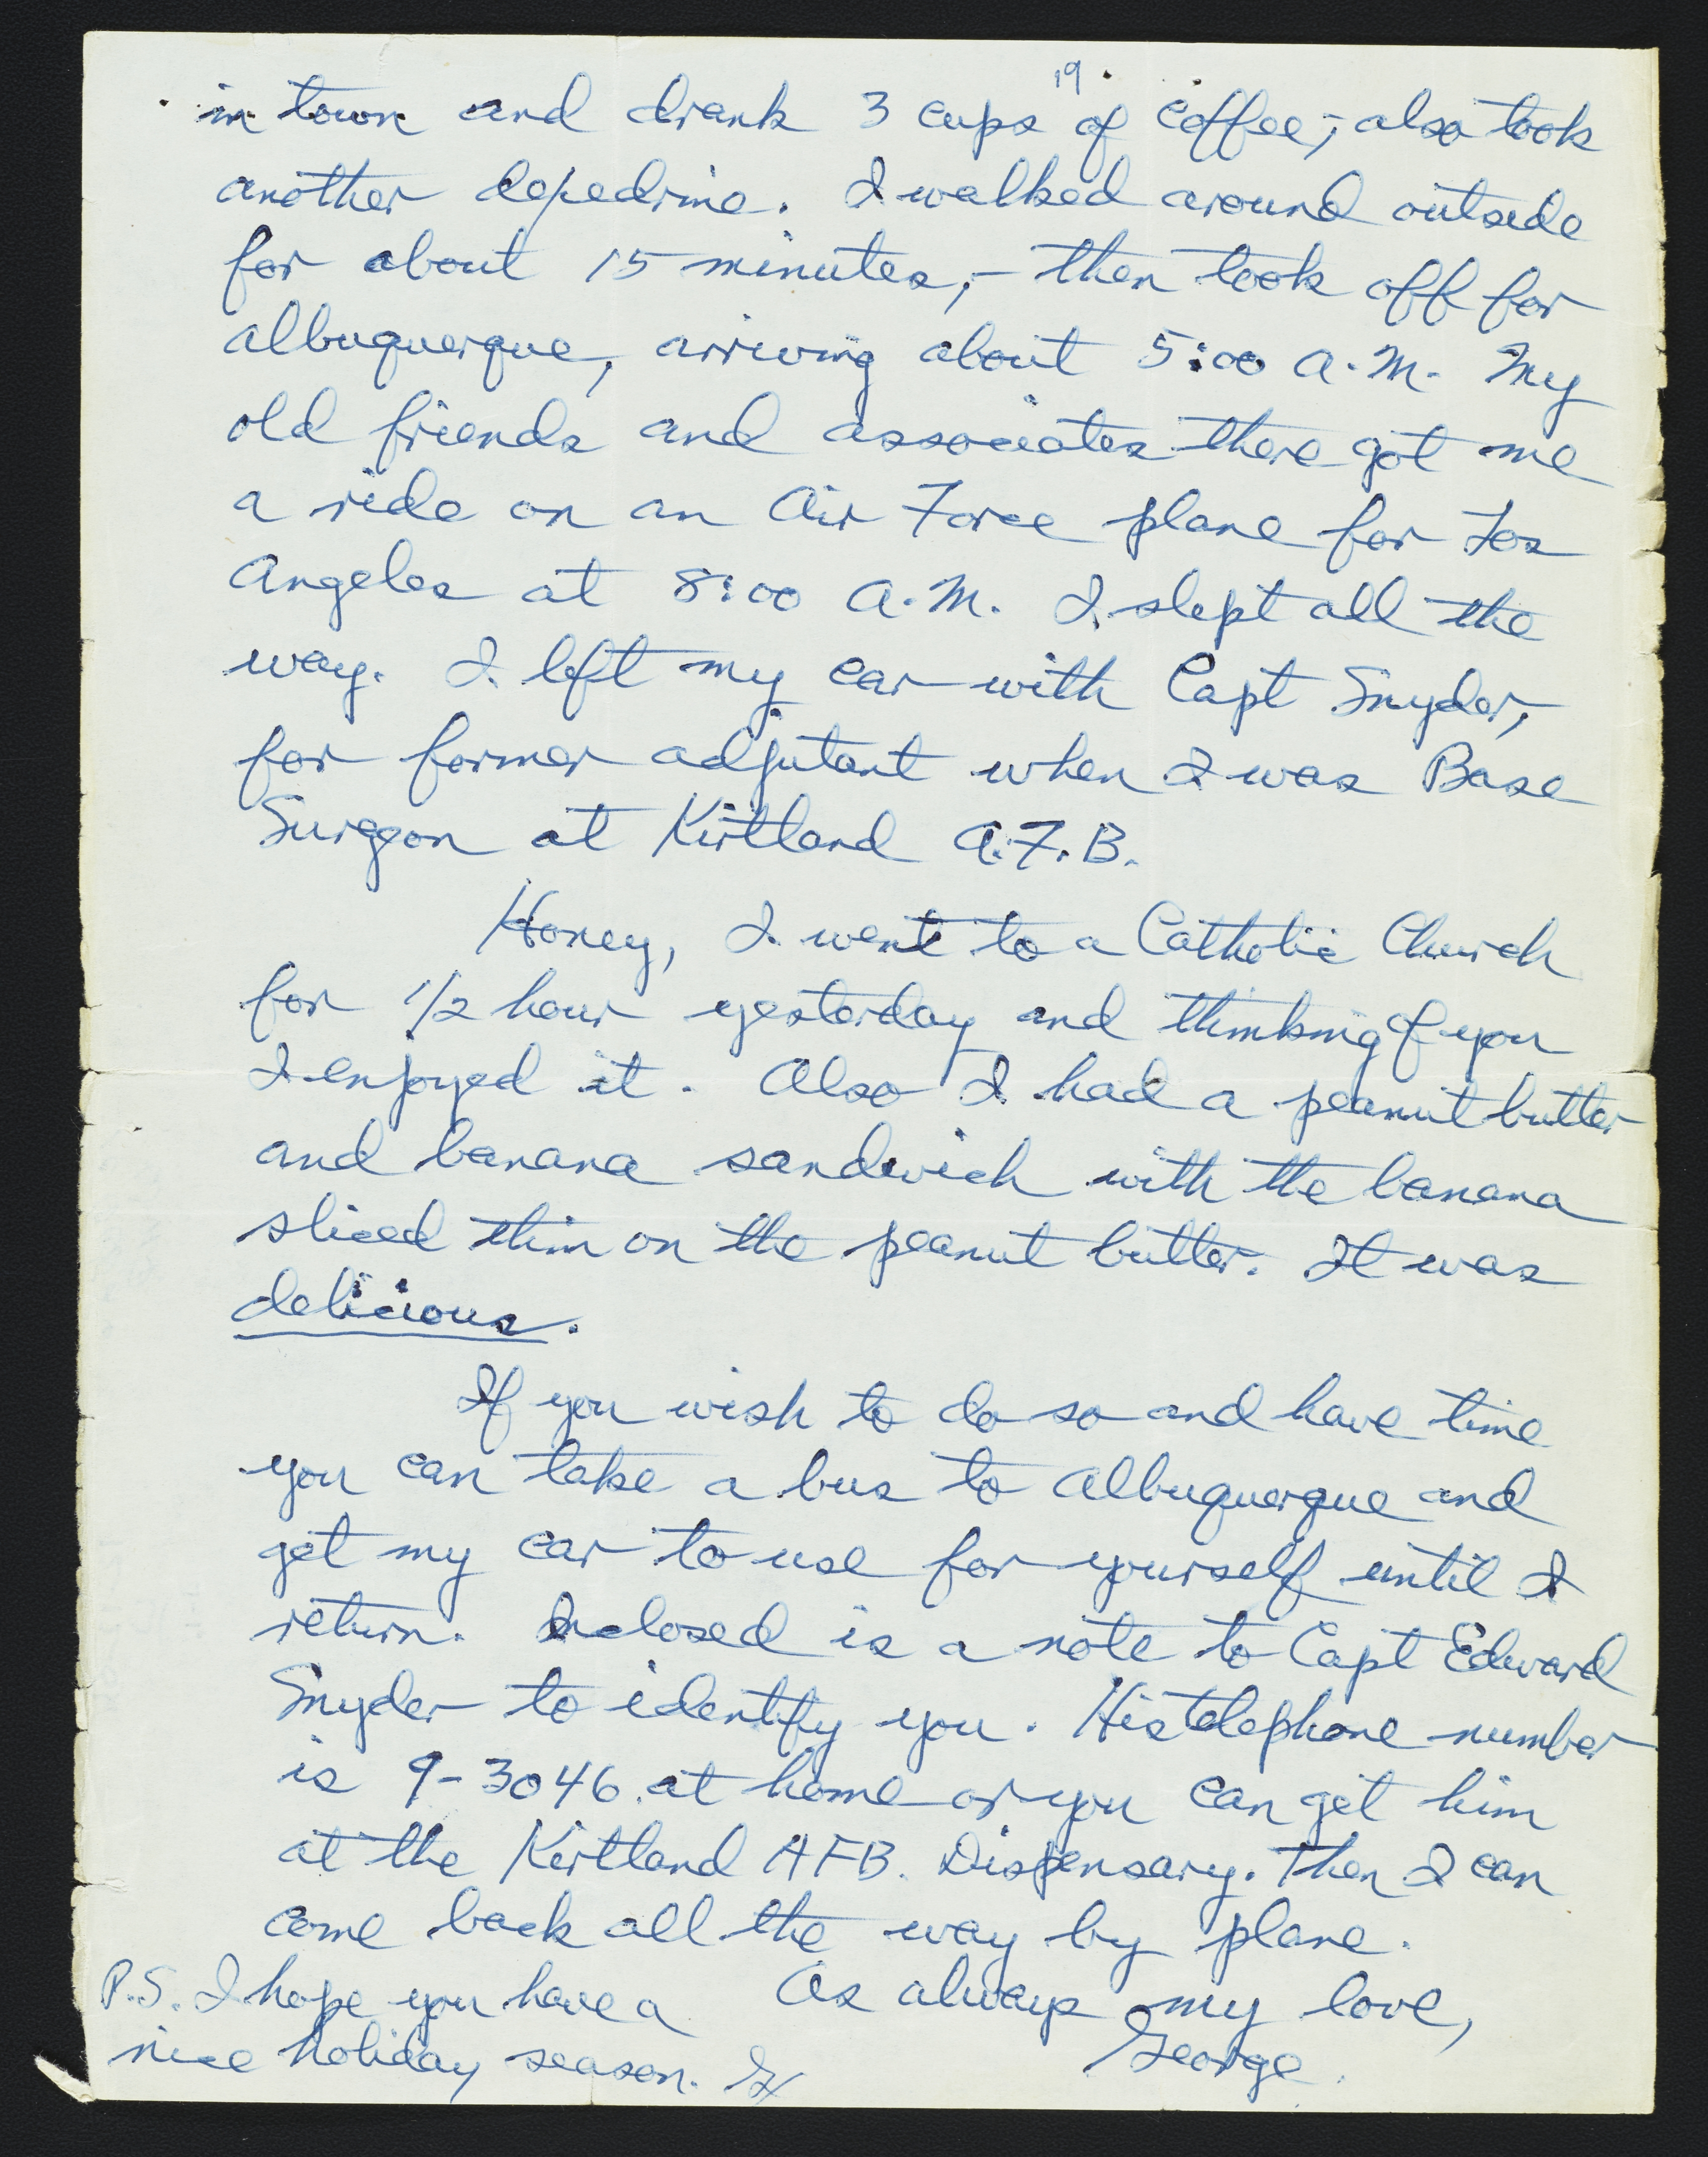 19
in town and drank 3 cups of coffee,- also took
another depedrine. I walked around outside
for about 15 minutes,- then took off for
albuquerque, arriving about 5:00 A.M. My
old friends and associates there got me
a ride on an Air Force plane for Los
Angeles at 8:00 A.M. I slept all the
way. I left my car with Capt Snyder,
for former adjutant when I was Base
Surgeon at Kirtland A.F.B.
Honey, I went to a Catholic Church
for 1/2 hour yesterday and thinking of you
I enjoyed it. Also I had a peanut butter
and banana sandwich with the banana
sliced thin on the peanut butter. It was
delicious.
If you wish to do so and have time
you can take a bus to Albuquerque and
get my car to use for yourself until I
return. Inclosed is a note to Capt Edward
Snyder to identify you. His telephone number
is 9-3046 at home or you can get him
at the Kirtland AFB. Dispensary. Then I can
come back all the way by plane.
As always my love,
George.
P.S. I hope you have a
nice holiday season. G